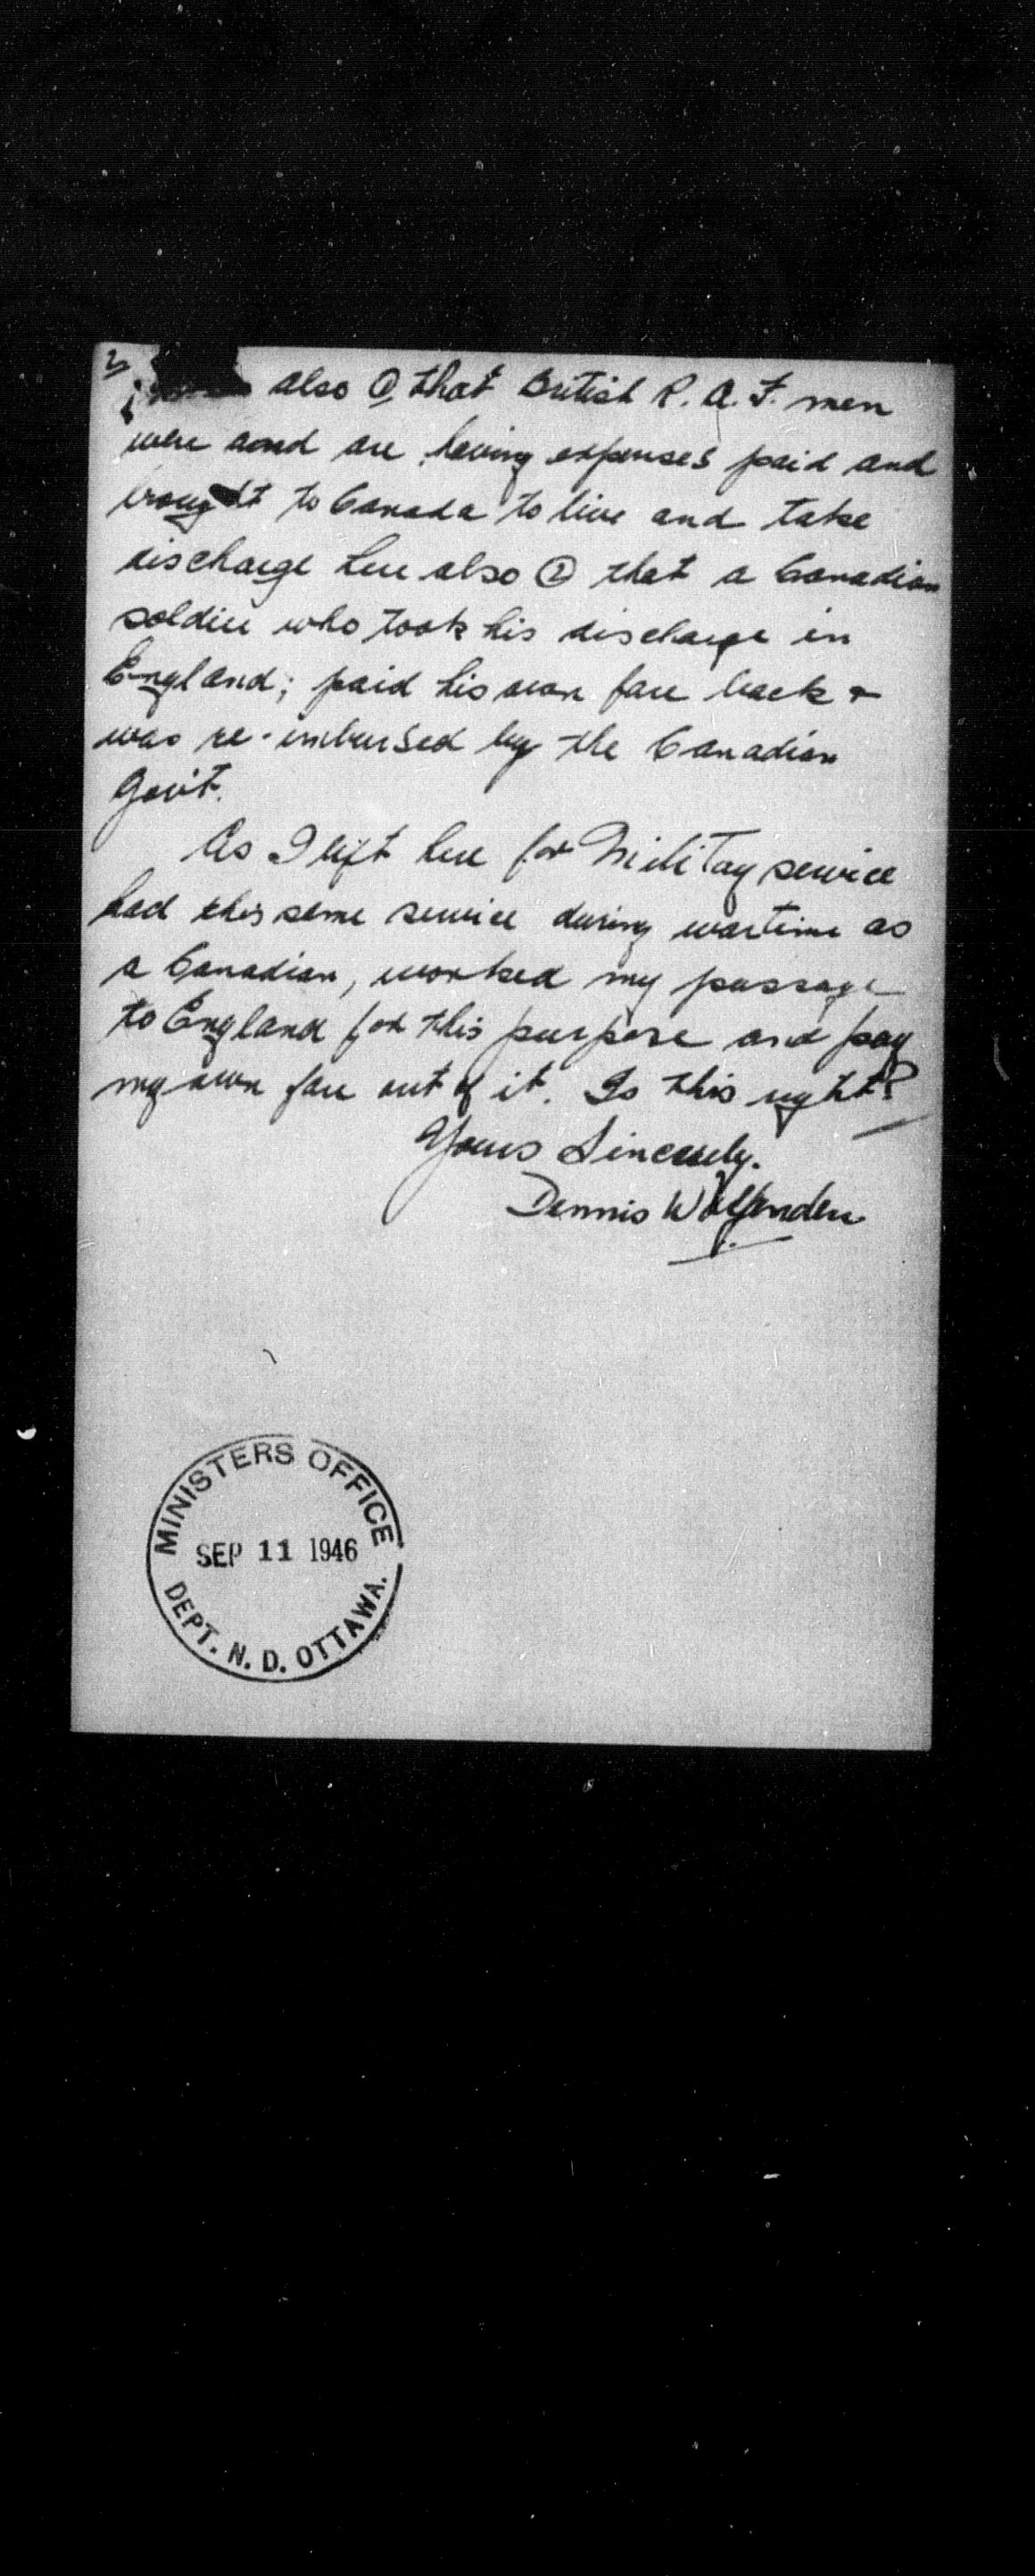 2)
also ① that British R. A. F. men
were and are having expenses paid and
brought to Canada to live and take
discharge here also ② that a Canadian
soldier who took his discharge in
England; paid his own fare back &
was re-imbursed by the Canadian
Gov't.
As I left here for Military service
had this same service during wartime as
a Canadian, worked my passage
to England for this purpose and pay
my own fare out of it. Is this right?
Yours Sincerely.
Dennis Wolfenden
MINISTERS OFFICE
SEP 11 1946
DEPT. N. D. OTTAWA.